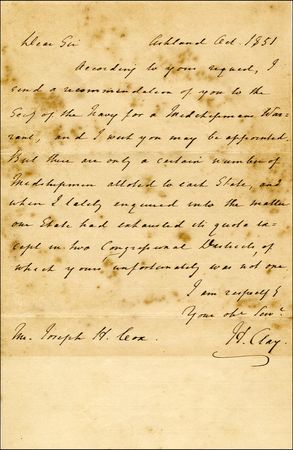 Dear Sir Ashland Oct. 1851
According to your request, I
send a recommendation of you to the
Secy of the Navy for a Midshipmans War-
rant, and I wish you may be appointed.
But there are only a certain number of
Midshipmen alloted to each State, and
when I lately enquired into the matter
our State had exhausted its quota ex-
cept in two Congressional Districts, of
which yours, unfortunately was not one
I am respectfy
Your obt Servt
Mr. Joseph H. Cox. H. Clay.